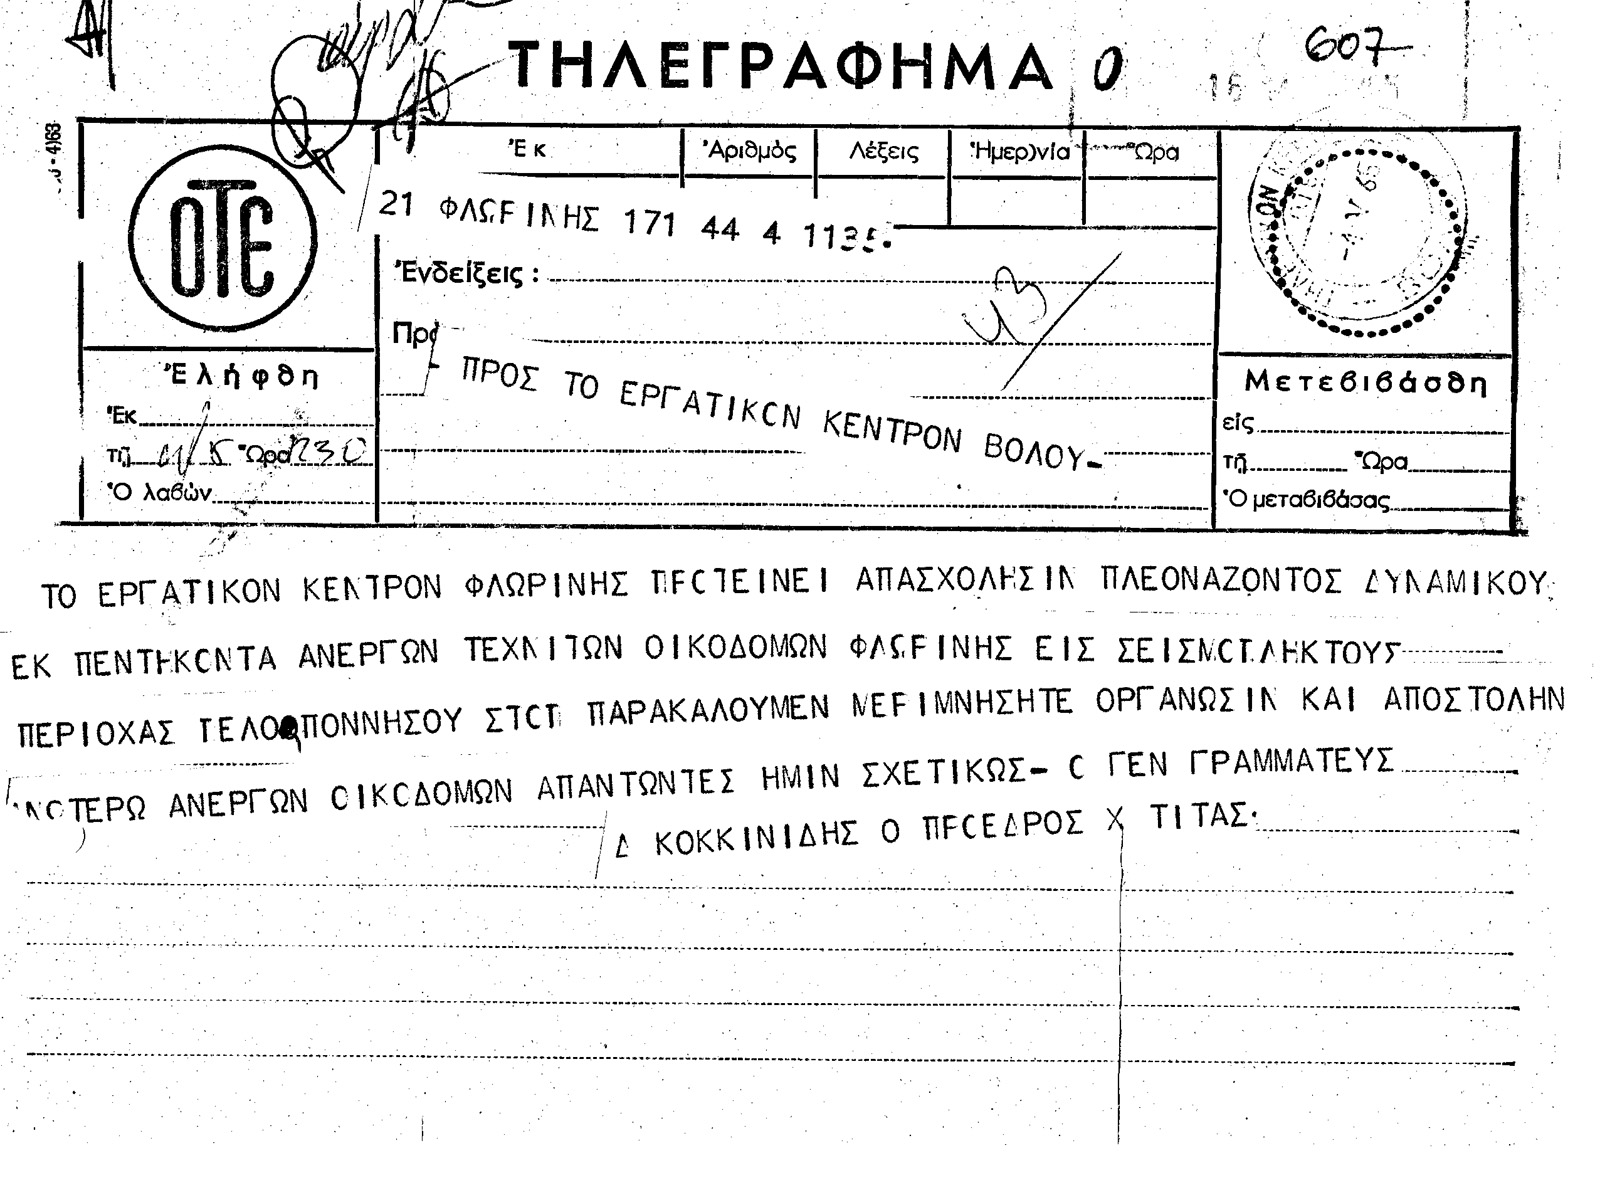 607
ΤΗΛΕΓΡΑΦΗΜΑ 0
Ἐκ Ἀριθμὸς Λέξεις Ἡμερ)νία Ὥρα
ΟΤΕ
21 ΦΛΩΡΙΝΗΣ 171 44 4 1135.
Ἐνδείξεις :
43
Πρὸ
- ΠΡΟΣ ΤΟ ΕΡΓΑΤΙΚΟΝ ΚΕΝΤΡΟΝ ΒΟΛΟΥ-
Ἐλήφθη
Ἐκ
τῇ Ὥρα 1230
Ὁ λαβὼν
Μετεβιβάσθη
εἰς
τῇ Ὥρα
Ὁ μεταβιβάσας
ΤΟ ΕΡΓΑΤΙΚΟΝ ΚΕΝΤΡΟΝ ΦΛΩΡΙΝΗΣ ΠΡΟΤΕΙΝΕΙ ΑΠΑΣΧΟΛΗΣΙΝ ΠΛΕΟΝΑΖΟΝΤΟΣ ΔΥΝΑΜΙΚΟΥ
ΕΚ ΠΕΝΤΗΚΟΝΤΑ ΑΝΕΡΓΩΝ ΤΕΧΝΙΤΩΝ ΟΙΚΟΔΟΜΩΝ ΦΛΩΡΙΝΗΣ ΕΙΣ ΣΕΙΣΜΟΠΛΗΚΤΟΥΣ
ΠΕΡΙΟΧΑΣ ΠΕΛΟΠΟΝΝΗΣΟΥ ΣΤΟΠ ΠΑΡΑΚΑΛΟΥΜΕΝ ΜΕΡΙΜΝΗΣΗΤΕ ΟΡΓΑΝΩΣΙΝ ΚΑΙ ΑΠΟΣΤΟΛΗΝ
ΑΝΩΤΕΡΩ ΑΝΕΡΓΩΝ ΟΙΚΟΔΟΜΩΝ ΑΠΑΝΤΩΝΤΕΣ ΗΜΙΝ ΣΧΕΤΙΚΩΣ- Ο ΓΕΝ ΓΡΑΜΜΑΤΕΥΣ
Δ ΚΟΚΚΙΝΙΔΗΣ Ο ΠΡΟΕΔΡΟΣ Χ ΤΙΤΑΣ.